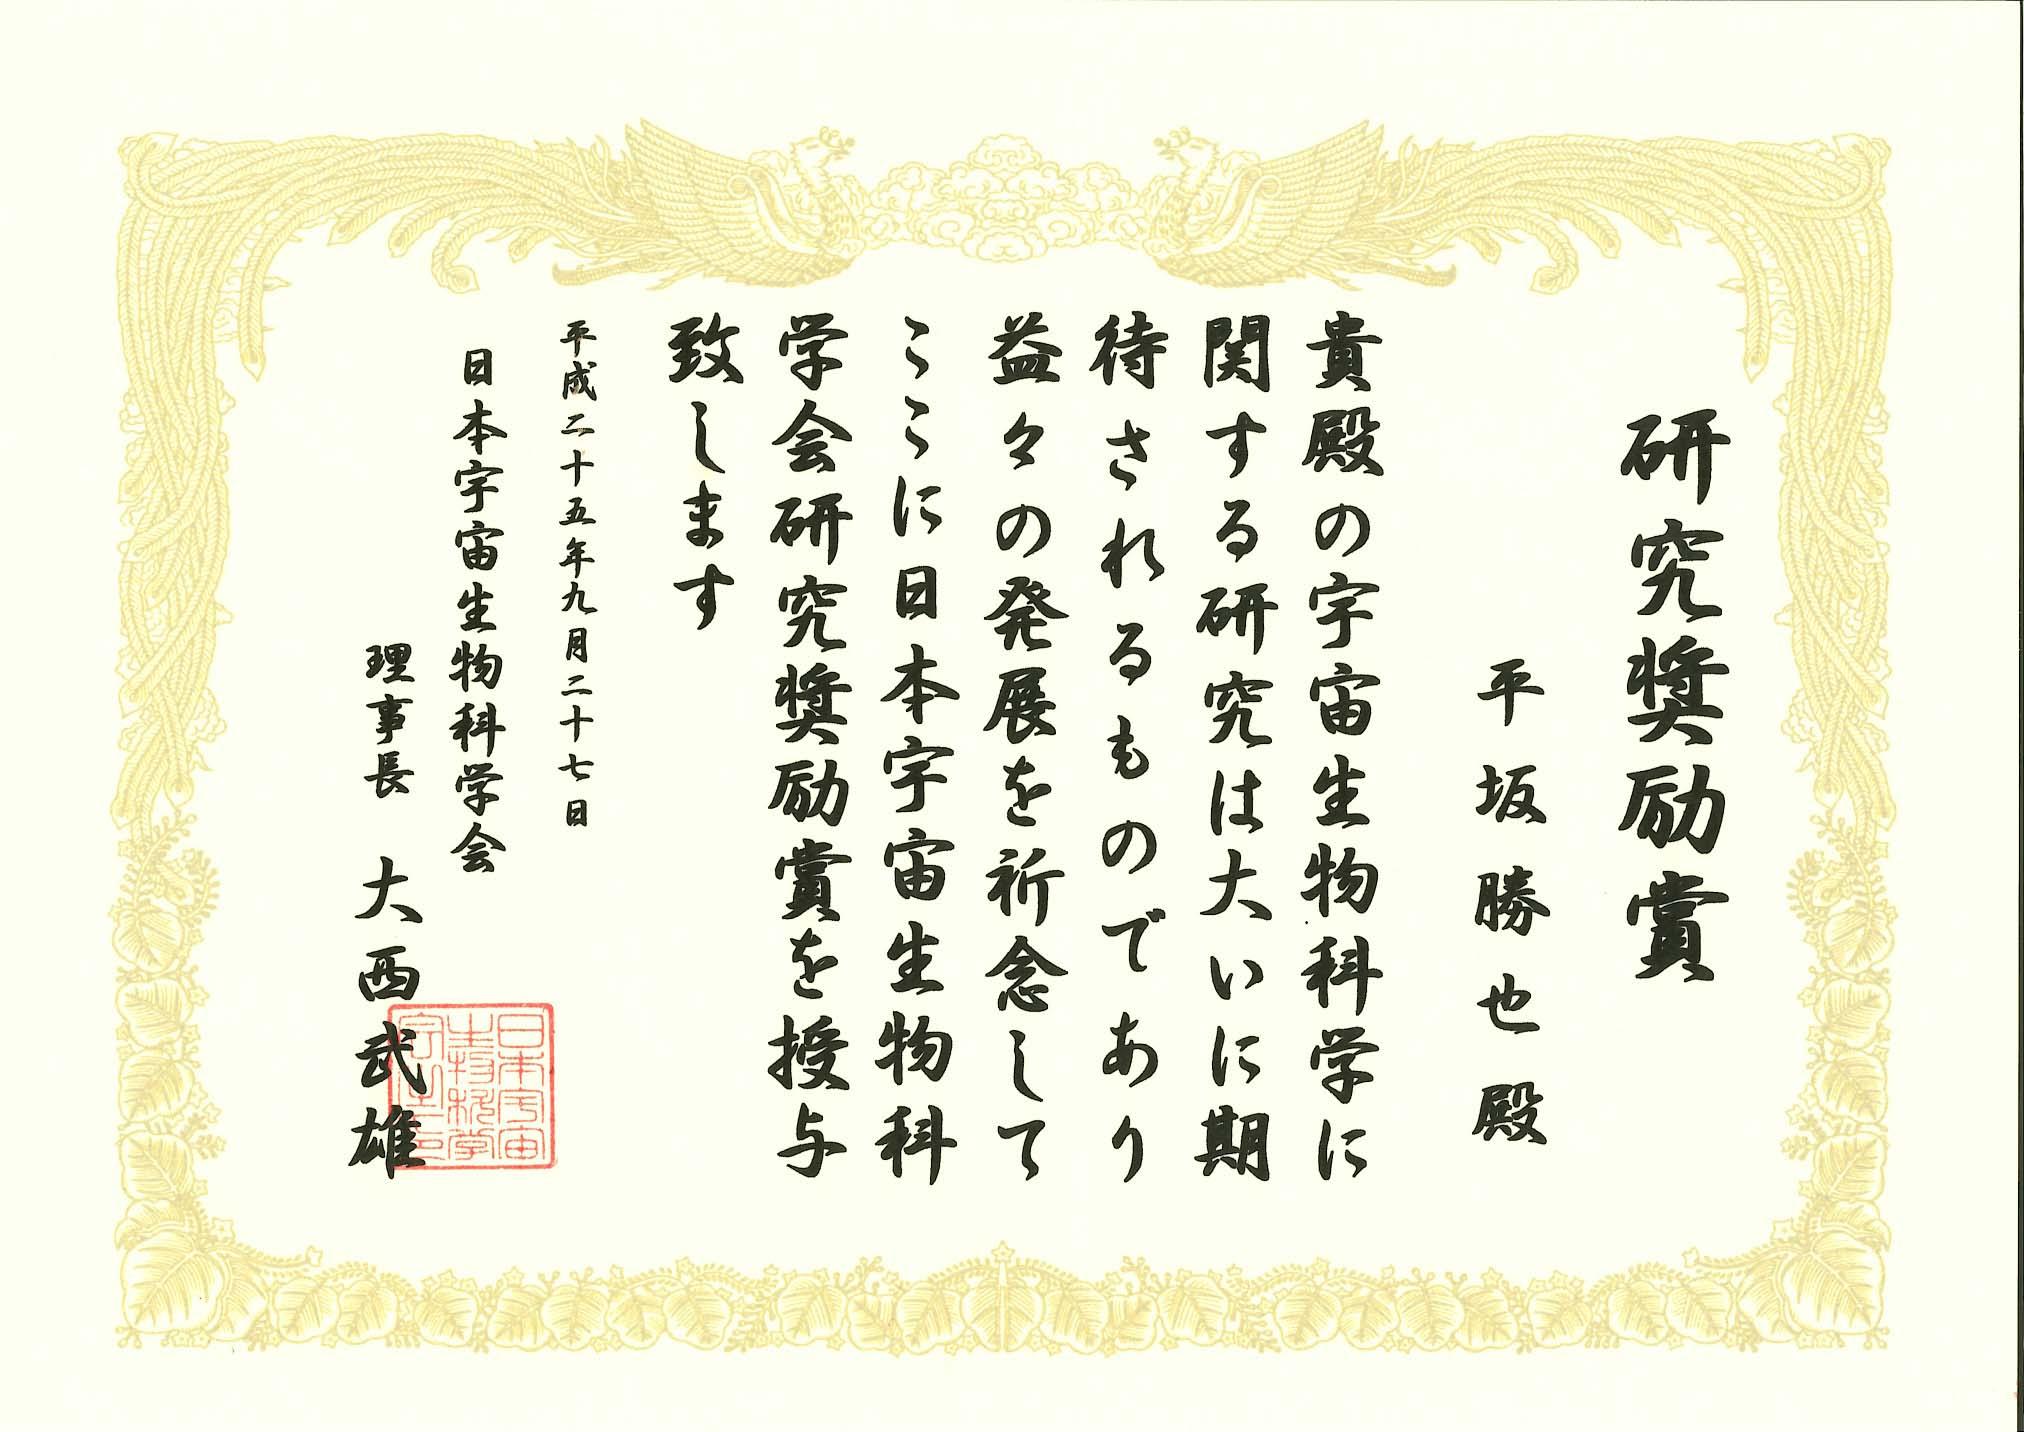 研究奨励賞
平坂勝也殿
貴殿の宇宙生物科学に
関する研究は大いに期
待されるものであり
益々の発展を祈念して
ここに日本宇宙生物科
学会研究奨励賞を授与
致します
平成二十五年九月二十七日
日本宇宙生物科学会
理事長 大西武雄
日本宇宙
生物科学